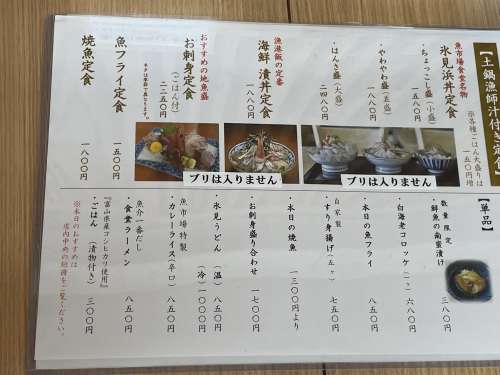 【土鍋漁師汁付き定食
※各種ごはん大盛りは
増
魚市場食堂名物
氷見浜丼定食
・ちょっこし盛(小盛)
・やわやわ盛(並盛)
・はんさ盛(大盛)
二四八〇円
漁港飯の定番
海鮮漬丼定食
一八八〇円
おすすめの地魚盛
お刺身定食
(ごはん付)
二二五〇円
魚フライ定食
一五八〇円
焼魚定食
一八〇〇円
ブリは入りません
ブリは入りません
【単品】
数量限定
・鮮魚の南蛮漬け
三八〇円
・白海老コロッケ(二ヶ)
六八〇円
・本日の魚フライ
八五〇円
自家製
・すり身揚げ(五ヶ)
七五〇円
・本日の焼魚
一三〇〇円より
・お刺身盛り合わせ
一七〇〇円
・氷見うどん(温)
八五〇円
(冷)
一〇〇〇円
魚市場特製
・カレーライス(辛口)
八五〇円
魚介一番だし
・食堂ラーメン
八五〇円
『富山県産コシヒカリ使用』
・ごはん(漬物付き)
三〇〇円
※本日のおすすめは
店内中央の地酒を
ご覧ください。